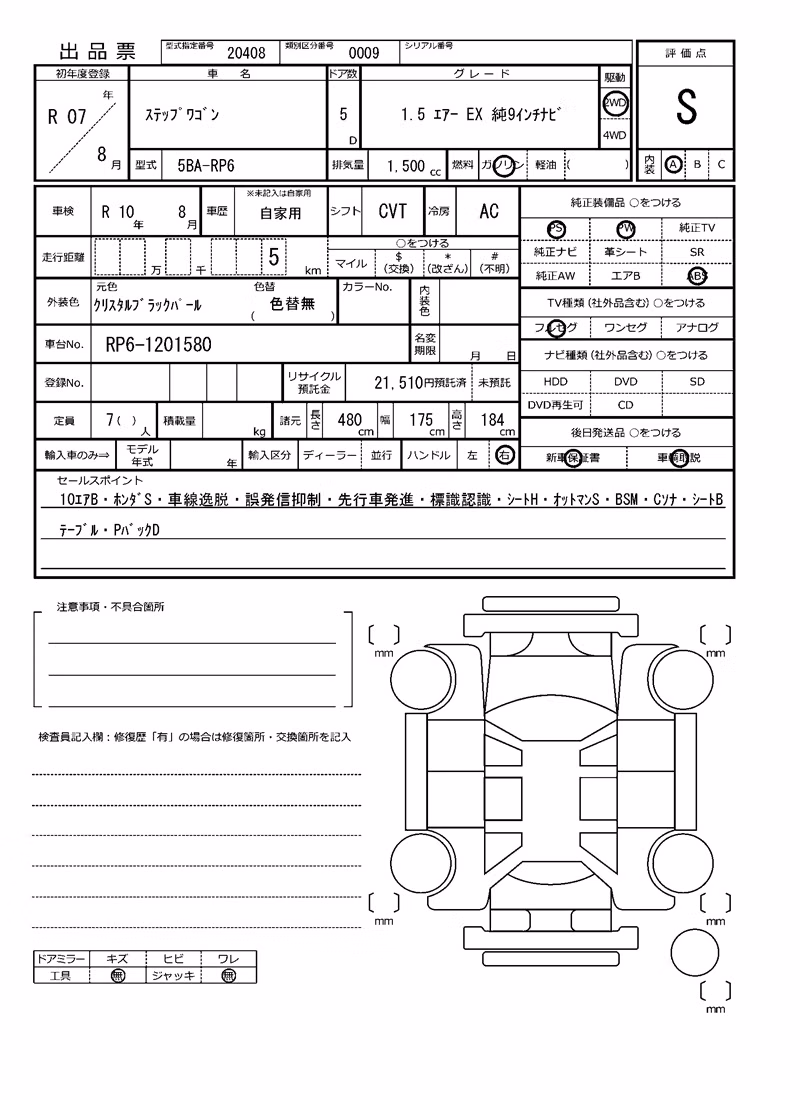 出品票 型式指定番号 20408 類別区分番号 0009 シリアル番号
評価点
S
内装 A B C
初年度登録 車名 ドア数 グレード 駆動
R 07 年 8 月 ステップワゴン 5 D 1.5 エアー EX 純9インチナビ 2WD 4WD
型式 5BA-RP6 排気量 1,500 cc 燃料 ガソリン 軽油 ( )
車検 R 10 年 8 月 車歴 ※未記入は自家用 自家用 シフト CVT 冷房 AC
走行距離 万 千 5 km ○をつける
マイル $ (交換) * (改ざん) # (不明)
外装色 元色 クリスタルブラックパール 色替 ( 色替無 ) カラーNo. 内装色
車台No. RP6-1201580 名変期限 月 日
登録No. リサイクル預託金 21,510円預託済 未預託
定員 7( ) 人 積載量 kg 諸元 長さ 480 cm 幅 175 cm 高さ 184 cm
輸入車のみ⇒ モデル年式 年 輸入区分 ディーラー 並行 ハンドル 左 右
純正装備品 ○をつける
PS PW 純正TV
純正ナビ 革シート SR
純正AW エアB ABS
TV種類(社外品含む)○をつける
フルセグ ワンセグ アナログ
ナビ種類(社外品含む)○をつける
HDD DVD SD
DVD再生可 CD
後日発送品 ○をつける
新車保証書 車輌取説
セールスポイント
10エアB・ホンダS・車線逸脱・誤発信抑制・先行車発進・標識認識・シートH・オットマンS・BSM・Cソナ・シートB
テーブル・PバックD
注意事項・不具合箇所
検査員記入欄：修復歴「有」の場合は修復箇所・交換箇所を記入
mm
mm
mm
mm
mm
ドアミラー キズ ヒビ ワレ
工具 無 ジャッキ 無